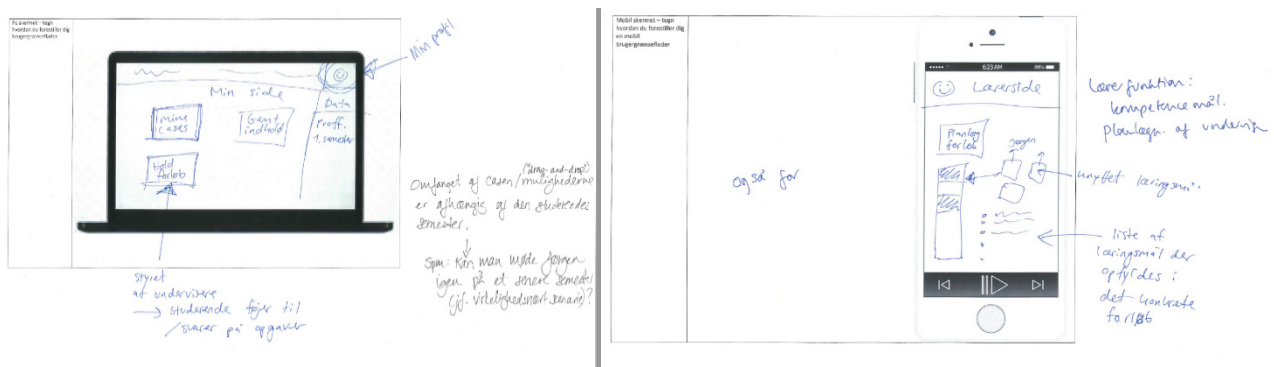 Pc skærmet – tegn
hvordan du forestiller dig
brugergrænseflader
Min profil
Min side
mine
cases
Gemt
indhold
Data
Proff.
1. semester
Hold
forløb
styret
af undervisere
→ studerende føjer til
/svarer på opgaver
("drag-and-drop")
Omfanget af casen/mulighederne
er afhængig af den studerendes
semester.
Spm: Kan man møde Jørgen
igen på et senere semester
(jf. virkelighedsnært scenarie)?
Mobil skærmet – tegn
hvordan du forestiller dig
en mobil
brugergrænseflader
også for
6:23 AM
Lærerside
Planlæg
forløb
Jørgen
Lærerfunktion:
kompetencemål.
planlægn. af undervisn
knyttet læringsmål.
liste af
læringsmål der
opfyldes i
det konkrete
forløb